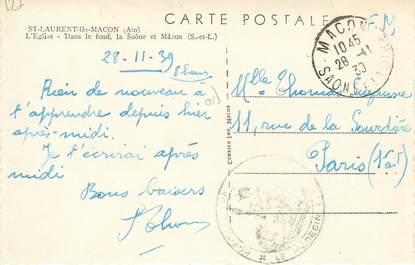 CARTE POSTALE
F.M
ST-LAURENT-lès-MACON (Ain)
L'Eglise - Dans le fond, la Saône et Mâcon (S.-et-L.)
28-11-39
8 heures
Rien de nouveau à
t'apprendre depuis hier
après-midi.
Je t'écrirai après
midi
Bons baisers
MACON
10 45
28 - 11
SAONE
Melle
11, rue de la Sourdière
Paris (1er ar)
LE MEDECIN